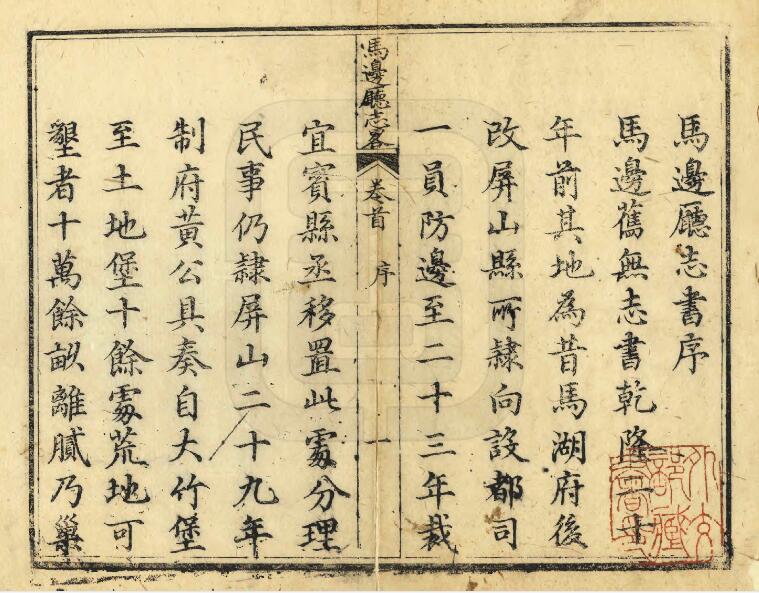 馬邊廳志書序
馬邊舊無志書乾隆二十
年前其地為昔馬湖府後
改屏山縣所隷向設都司
一員防邊至二十三年裁
馬邊廳志畧
卷首 序 一
宜賓縣丞移置此䖏分理
民事仍隷屏山二十九年
制府黃公具奏自大竹堡
至土地堡十餘䖏荒地可
墾者十萬餘畝離膩乃巢